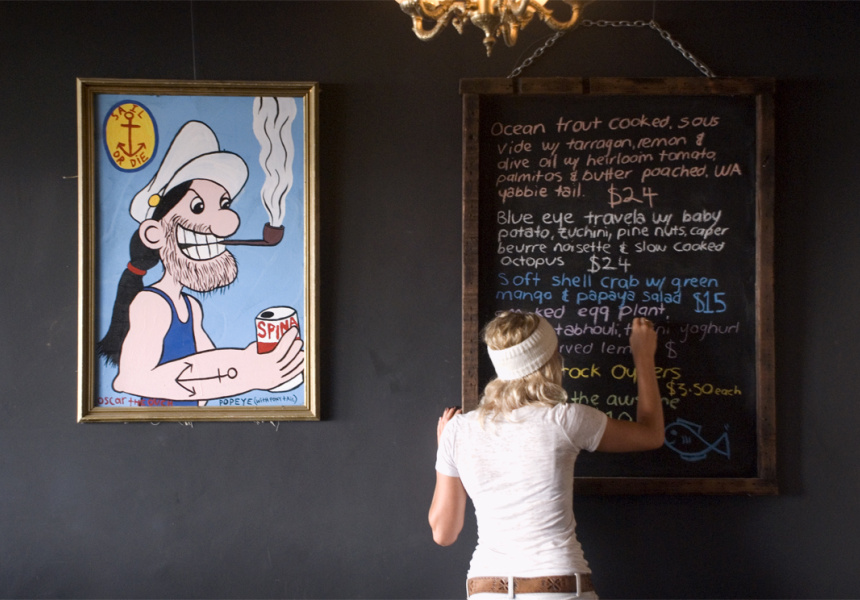 SAIL
OR DIE
SPINA
oscar the
POPEYE (with
Ocean trout cooked, sous
vide w/ tarragon, lemon &
olive oil w/ heirloom tomato,
palmitos & butter poached, WA
yabbie tail. $24
Blue eye travela w/ baby
potato, zuchini, pine nuts, caper
beurre noisette & slow cooked
octopus $24
Soft shell crab w/ green
mango & papaya salad $15
egg plant,
tabhouli, yoghurt
$
rock
$3.50 each
the